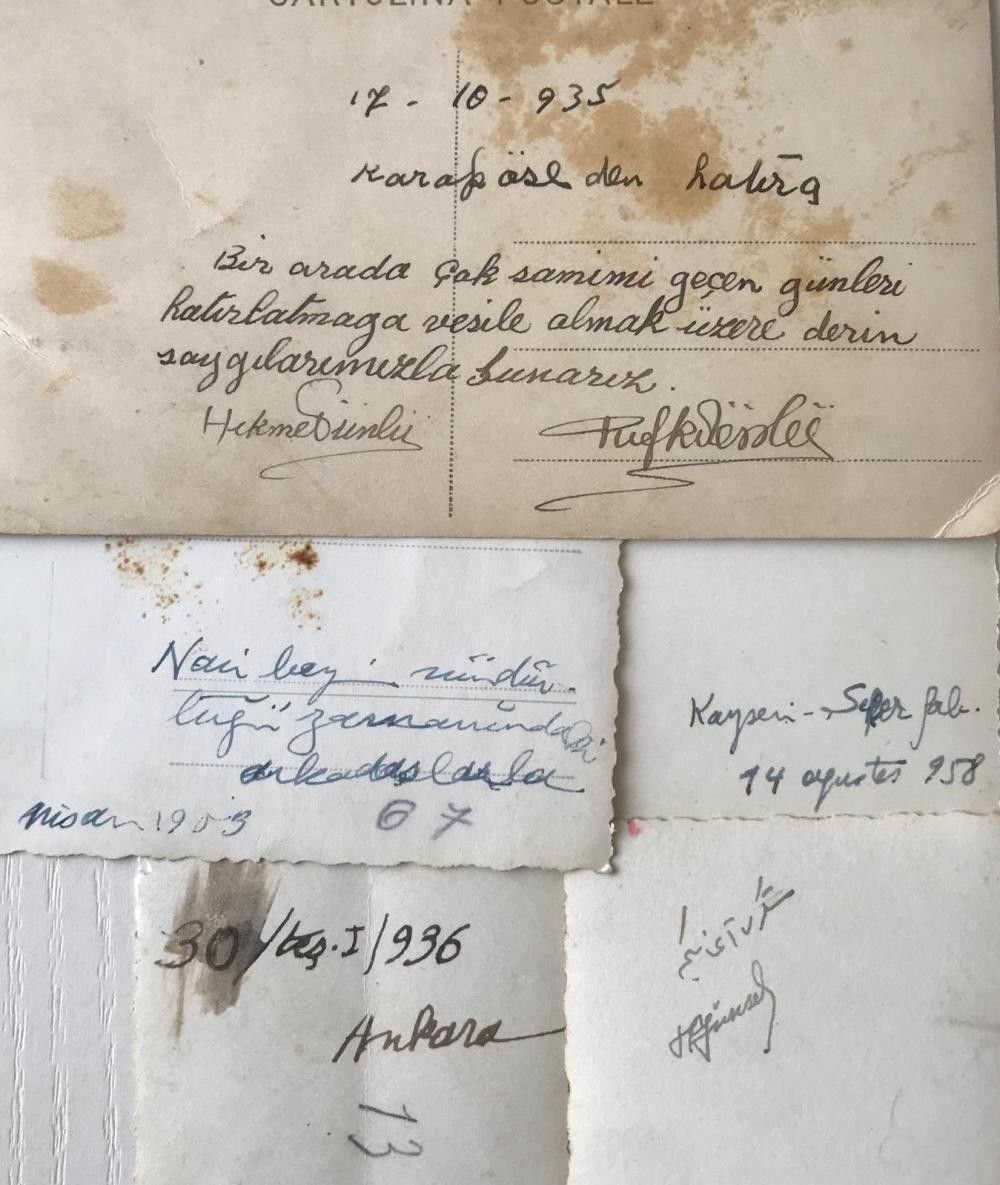 CARTOLINA POSTALE
17 - 10 - 935
Karaköse den hatıra
Bir arada çok samimi geçen günleri
hatırlatmaga vesile olmak üzere derin
saygılarımızla sunarız.
Hikmet Ünlü
Nail bey müdür-
lüğü zamanında
arkadaşlarla
Nisan 1953
67
Kayseri - Seker fab.
14 agustos 958
30/teş.I/936
Ankara
13